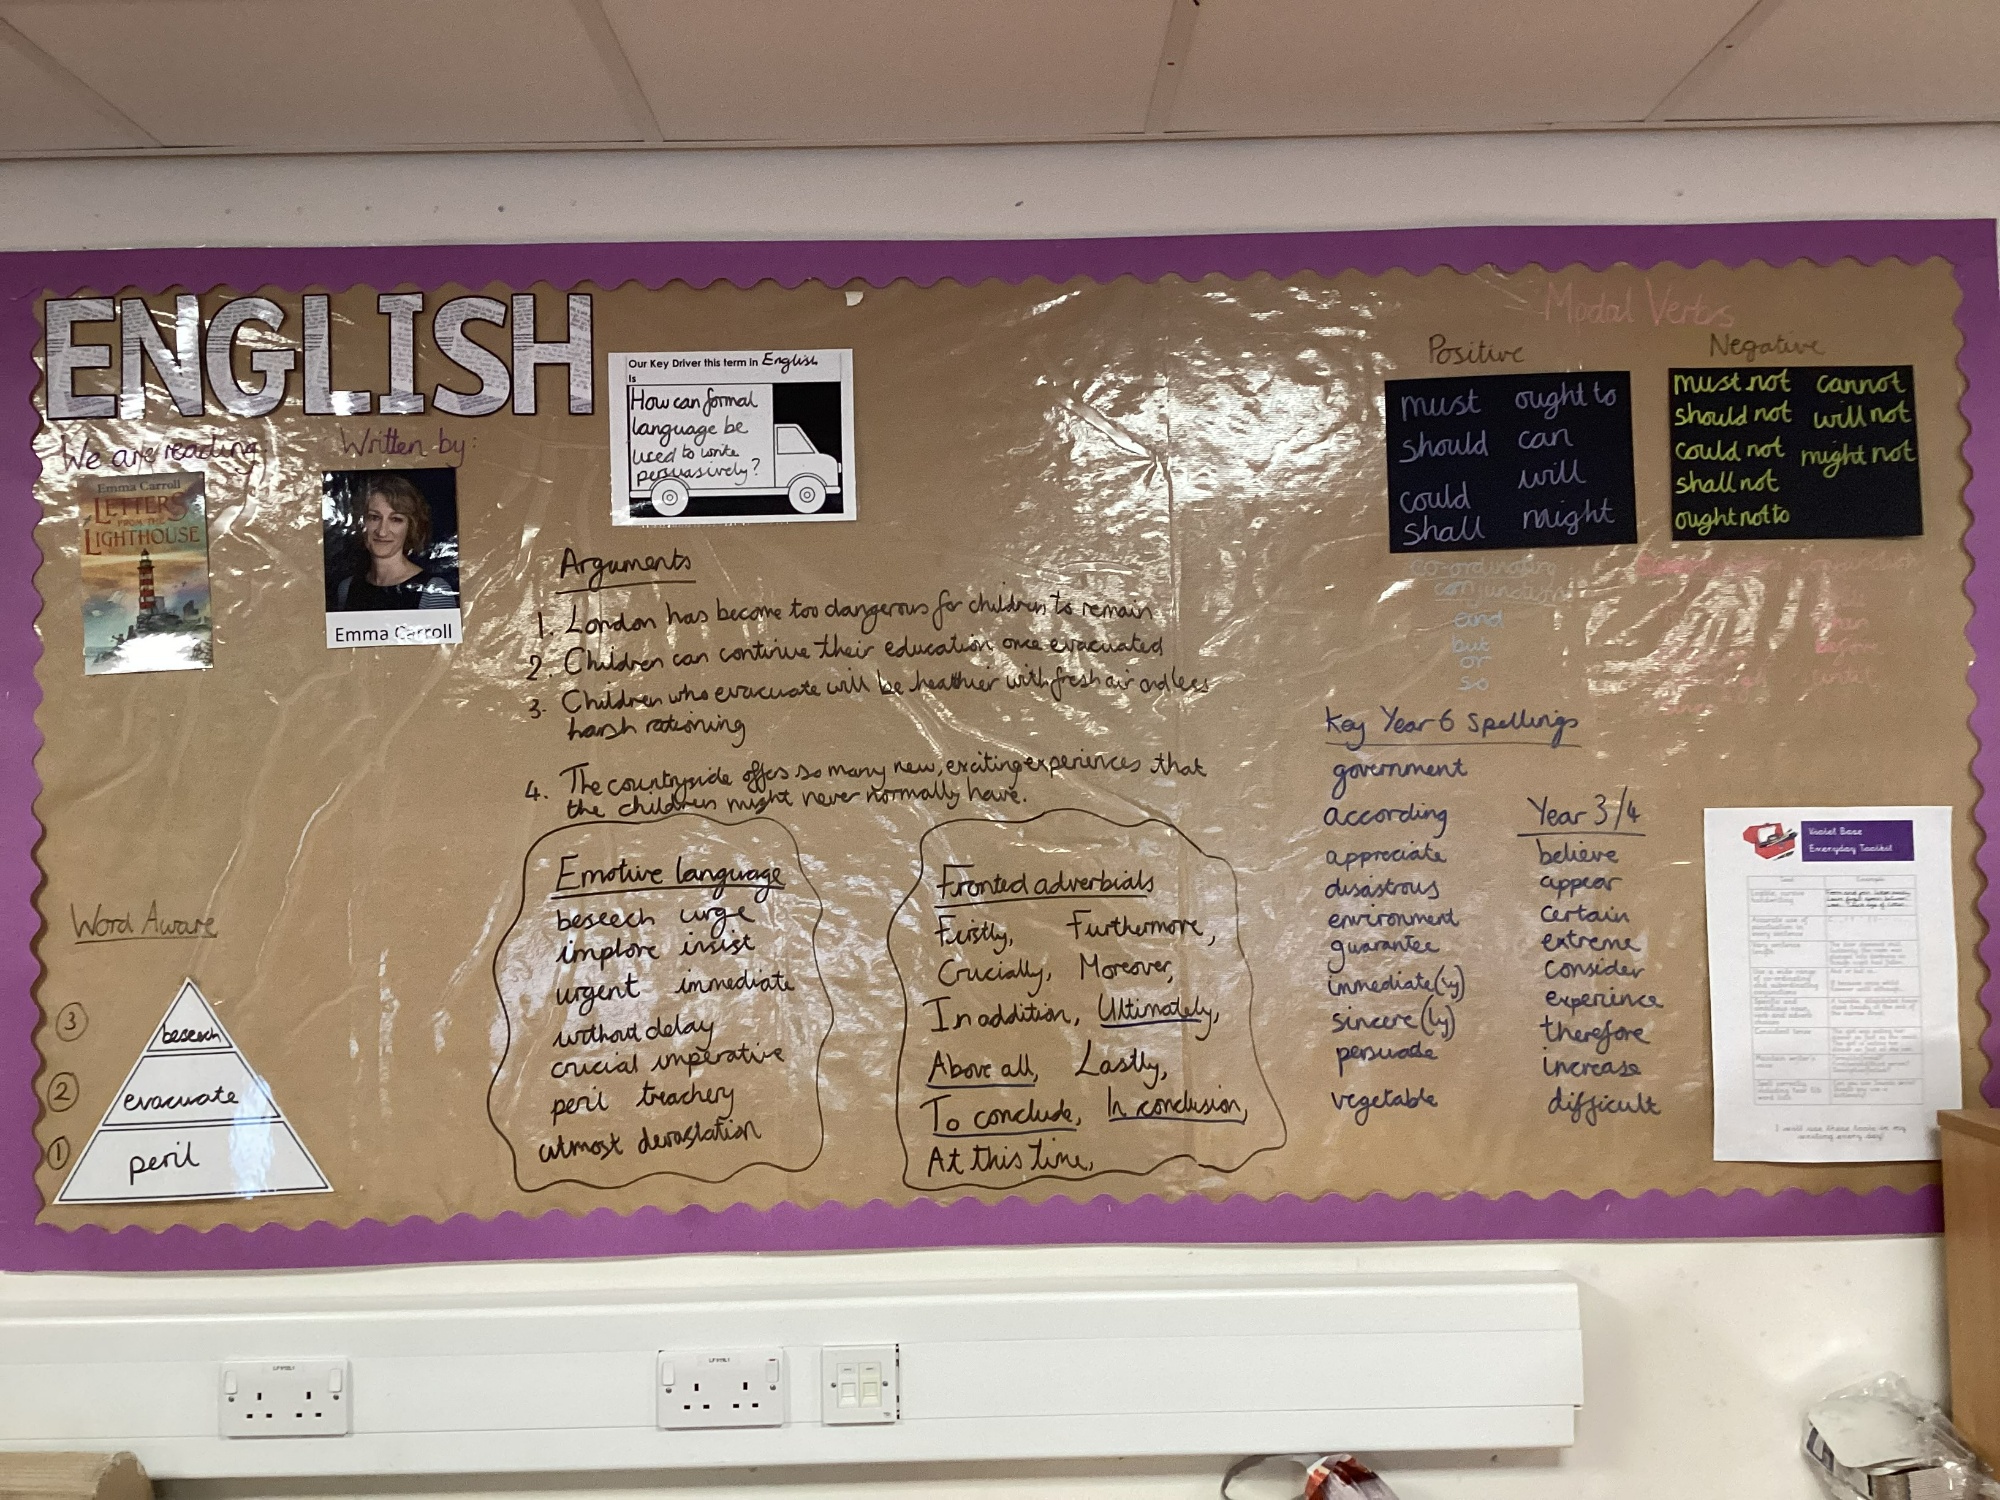 ENGLISH
We are reading:
Written by:
Emma Carroll
LETTERS
FROM THE
LIGHTHOUSE
Emma Carroll
Our Key Driver this term in English
is
How can formal
language be
used to write
persuasively?
Arguments
1. London has become too dangerous for children to remain
2. Children can continue their education once evacuated
3. Children who evacuate will be healthier with fresh air and less
harsh rationing
4. The countryside offers so many new, exciting experiences that
the children might never normally have.
Word Aware
3 beseech
2 evacuate
1 peril
Emotive language
beseech urge
implore insist
urgent immediate
without delay
crucial imperative
peril treachery
utmost devastation
Fronted adverbials
Firstly, Furthermore,
Crucially, Moreover,
In addition, Ultimately,
Above all, Lastly,
To conclude, In conclusion,
At this time,
Modal Verbs
Positive
must ought to
should can
will
could
shall might
Negative
must not cannot
should not will not
could not might not
shall not
ought not to
co-ordinating
conjunctions
and
but
or
so
before
until
Key Year 6 Spellings
government
according
appreciate
disastrous
environment
guarantee
immediate(ly)
sincere(ly)
persuade
vegetable
Year 3/4
believe
appear
certain
extreme
consider
experience
therefore
increase
difficult
Violet Base
Everyday Toolkit
I will use these tools in my
writing every day!